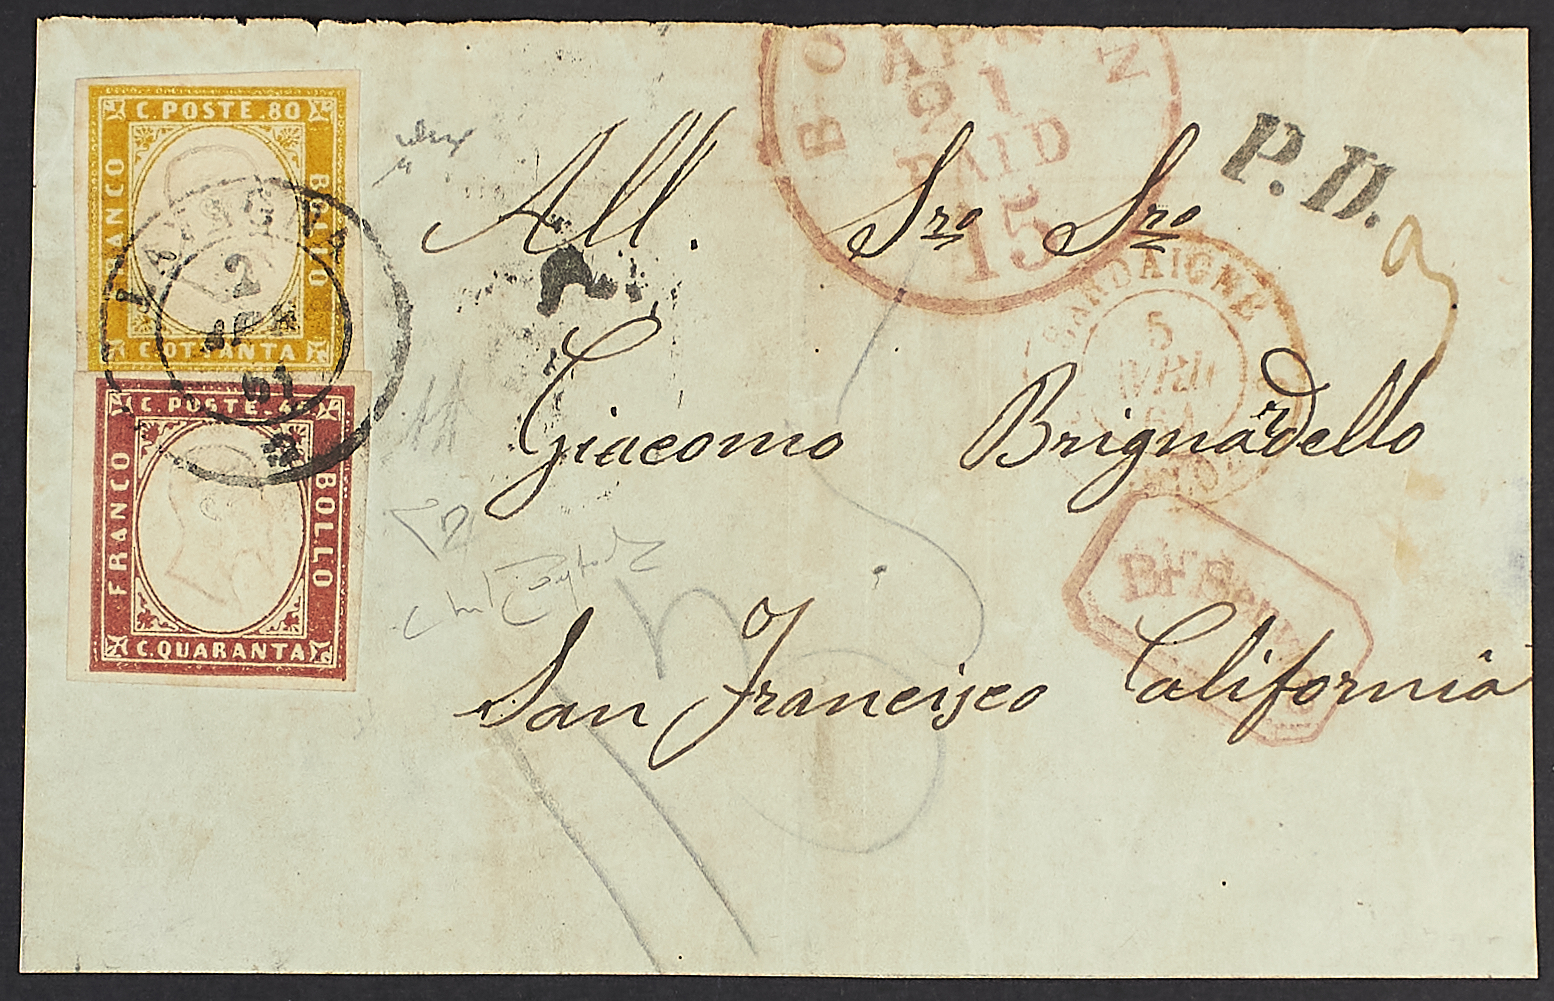 C. POSTE. 80
FRANCO
BOLLO
C. OTTANTA
2
APR
61
C. POSTE. 40
FRANCO
BOLLO
C. QUARANTA
BO N
APR
21
PAID
15
P.D.
SARDAIGNE
5
AVRIL
61
Br Service
All. Sre Sre
Giacomo Brignardello
San Francisco California